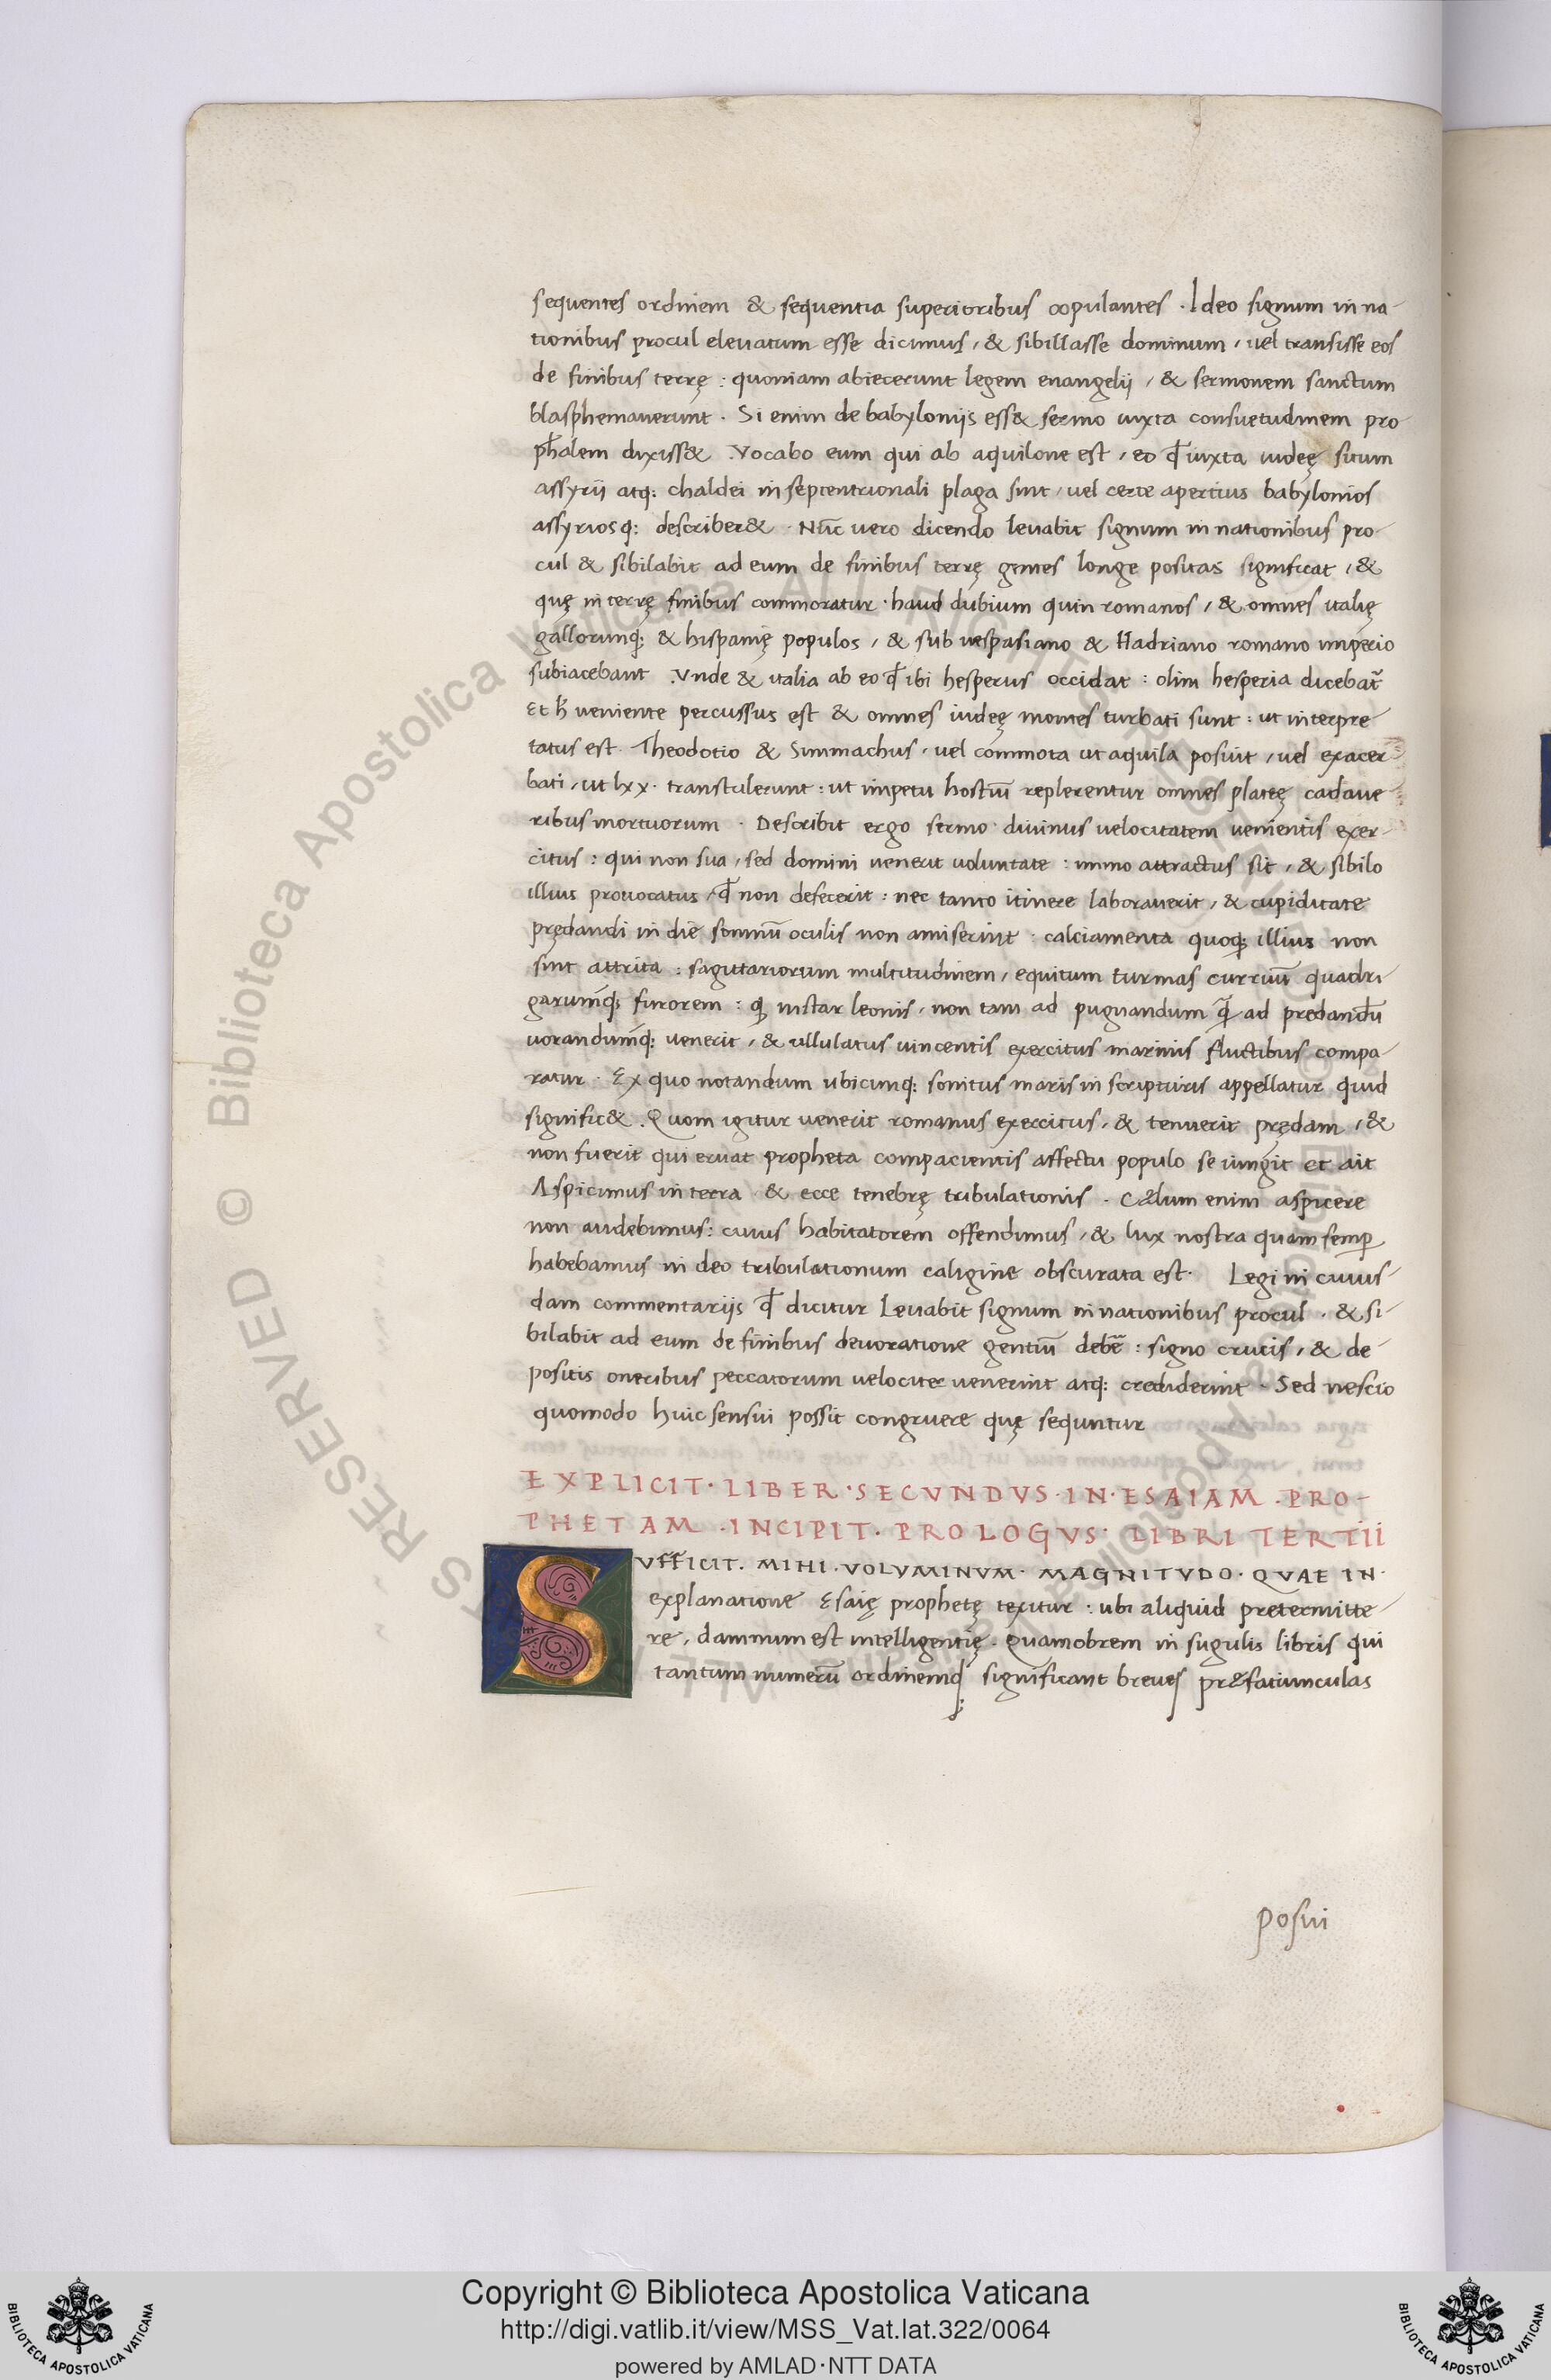 sequentes ordinem & sequentia superioribus copulantes . Ideo signum in na-
tionibus procul eleuatum esse dicimus, & sibillasse dominum, uel transisse eos
de finibus terrę : quoniam abiecerunt legem euangelij, & sermonem sanctum
blasphemauerunt . Si enim de babyloniis ess& sermo iuxta consuetudinem pro
phalem dixiss& . Vocabo eum qui ab aquilone est, eo qđ iuxta iudeę situm
assyrij atq; chaldei in septentrionali plaga sint, uel certe apertius babylonios
assyriosq; describer& . Nūc uero dicendo leuabit signum in nationibus pro-
cul & sibilabit ad eum de finibus terrę gentes longe positas significat, &
quę in terrę finibus commoratur . haud dubium quin romanos, & omnes italię
gallorumq; & hispanię populos, & sub uespasiano & Hadriano romano imperio
subiacebant . Vnde & italia ab eo qđ ibi hesperus occidat : olim hesperia dicebat̃
Et h̄ ueniente percussus est & omnes iudeę montes turbati sunt : ut interpre-
tatus est . Theodotio & Simmachus, uel commota ut aquila posuit, uel exacer-
bati, ut lxx . transtulerunt : ut impetu hostiū replerentur omnes plateę cadaue
ribus mortuorum . Describit ergo sermo diuinus uelocitatem uenientis exer-
citus : qui non sua, sed domini uenerit uoluntate : immo attractus sit, & sibilo
illius prouocatus, qđ non defecerit : nec tanto itinere laborauerit, & cupiditate
prędandi in die somnū oculis non amiserint : calciamenta quoq; illius non
sint attrita : sagittariorum multitudinem, equitum turmas curriuū quadri
garumq; furorem : q instar leonis, non tam ad pugnandum q̃ ad predandū
uorandumq; uenerit, & ullulatus uincentis exercitus marinis fluctibus compa-
ratur . Ex quo notandum ubicunq; sonitus maris in scripturis appellatur quid
signific& . Quom igitur uenerit romanus exercitus, & tenuerit prędam, &
non fuerit qui eruat propheta compacientis affectu populo se iungit et ait
Aspicimus in terra & ecce tenebrę tribulationis . Cælum enim aspicere
non audebimus : cuius habitatorem offendimus, & lux nostra quam semp
habebamus in deo tribulationum caligine obscurata est . Legi in cuius-
dam commentarijs qđ dicitur Leuabit signum in nationibus procul . & si-
bilabit ad eum de finibus deuoratione gentiū debē : signo crucis, & de-
positis oneribus peccatorum uelociter uenerint atq; crediderint . Sed nescio
quomodo huic sensui possit congruere quę sequntur
EXPLICIT . LIBER . SECVNDVS . IN . ESAIAM . PRO-
PHETAM . INCIPIT . PROLOGVS . LIBRI TERTII
SVFFICIT . MIHI . VOLVMINVM . MAGNITVDO . QVAE IN .
explanatione Esaię prophetę texitur : ubi aliquid pretermitte-
re, damnum est intelligentię . Quamobrem in sigulis libris qui
tantum numerū ordinemq; significant breues præfatiunculas
posui
© Biblioteca Apostolica Vaticana ALL RIGHTS RESERVED
Copyright © Biblioteca Apostolica Vaticana
http://digi.vatlib.it/view/MSS_Vat.lat.322/0064
powered by AMLAD·NTT DATA
BIBLIOTECA APOSTOLICA VATICANA
BIBLIOTECA APOSTOLICA VATICANA